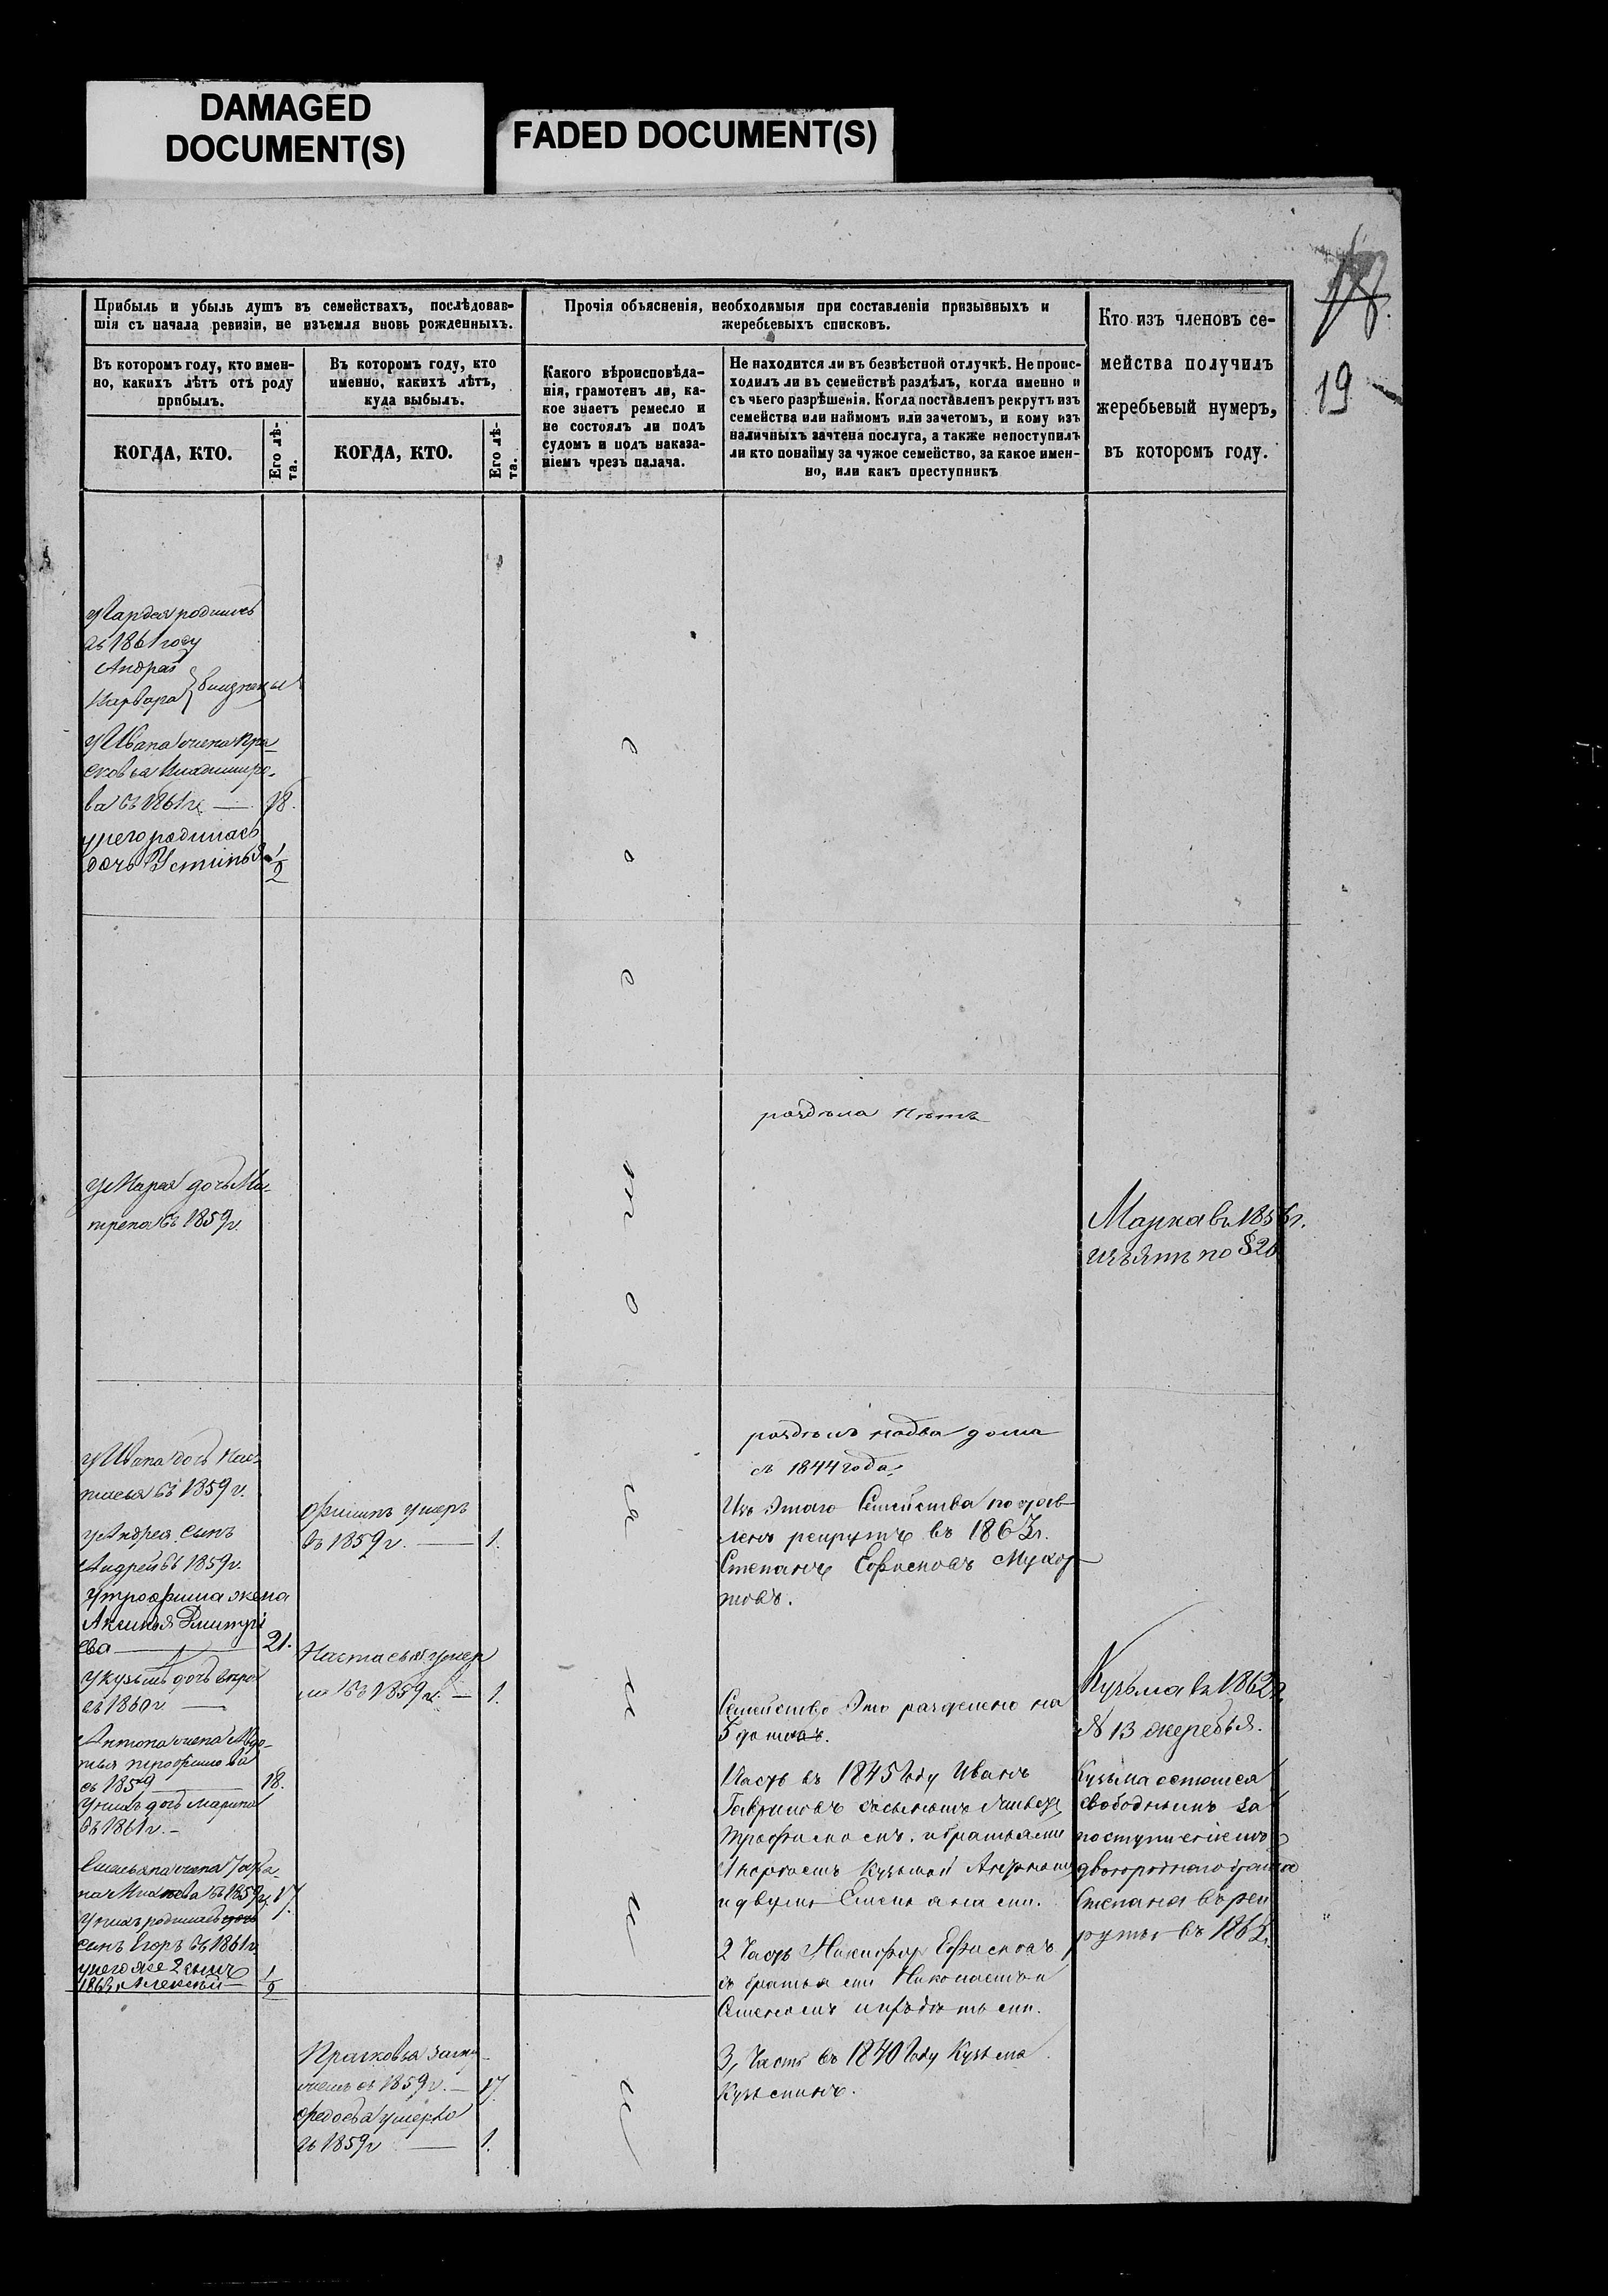 DAMAGED
DOCUMENT(S)
FADED DOCUMENT(S)
19
Прибыль и убыль душъ въ семействахъ, послѣдовав-
шія съ начала ревизіи, не изъемля вновь рожденныхъ.
Прочія объясненія, необходимыя при составленіи призывныхъ и
жеребьевыхъ списковъ.
Кто изъ членовъ се-
мейства получилъ
жеребьевый нумеръ,
въ которомъ году.
Въ которомъ году, кто имен-
но, какихъ лѣтъ отъ роду
прибылъ.
Въ которомъ году, кто
именно, какихъ лѣтъ,
куда выбылъ.
Какого вѣроисповѣда-
нія, грамотенъ ли, ка-
кое знаетъ ремесло и
не состоялъ ли подъ
судомъ и подъ наказа-
ніемъ чрезъ палача.
Не находится ли въ безвѣстной отлучкѣ. Не проис-
ходилъ ли въ семействѣ раздѣлъ, когда именно и
съ чьего разрѣшенія. Когда поставленъ рекрутъ изъ
семейства или наймомъ или зачетомъ, и кому изъ
наличныхъ зачтена послуга, а также непоступилъ
ли кто понайму за чужое семейство, за какое имен-
но, или какъ преступникъ
КОГДА, КТО.
Его лѣ-
та.
КОГДА, КТО.
Его лѣ-
та.
родились
въ 1861 году
Андрей
Варвара близнецы
у Ивана жена Пра
сковья Владимиро-
ва съ 1861 г. — 18.
у него родилась
дочь Устинья 1/2
раздѣла нѣтъ
у Марка дочь Ма-
трена съ 1859 г.
Марка въ 1856 г.
изъятъ по § 20
у Ивана дочь Нас-
тасья съ 1859 г.
у Андрея сынъ
Андрей съ 1859 г.
у трофима жена
Аксинья Дмитрі
ева — 21.
у кузьмы дочь
съ 1860 г. —
Антона жена Авдо-
тья трофимова
съ 1859 — 18.
у нихъ дочь Марина
съ 1861 г. -
Емельяна жена
съ 1859 г. 17.
у нихъ родилась дочь
сынъ Егоръ съ 1861 г.
у него же 2 сынъ
1863 г. Алексѣй — 1/2
Филипъ умеръ
въ 1859 г. — 1.
Настасья умер
ла съ 1859 г. — 1.
Прасковья заму
жемъ съ 1859 г. — 17
Федосья умерла
въ 1859 г — 1.
раздѣлъ на два дома
съ 1844 года.
Изъ этаго Семейства постав-
ленъ рекрутъ въ 1863 г.
Степанъ Ефисповъ
Семейство Это разделено на
5 домовъ.
1 Часть въ 1845 Году Иванъ
Гавриловъ съсыномъ
Трофимомъ. ибратьями
Кузьмой Антономъ
идвумя Емельянами.
2 Часть Никифоръ
съ братьями Николаемъ и
Семеномъ
3, Часть въ 1840 Году Кузьма
Кузьминъ.
Кузьма въ 1862 г.
№ 13 жеребья.
Кузьма остается
свободнымъ за
поступленіемъ
двоюроднаго брата
Степана въ рек
руты въ 1863 г.